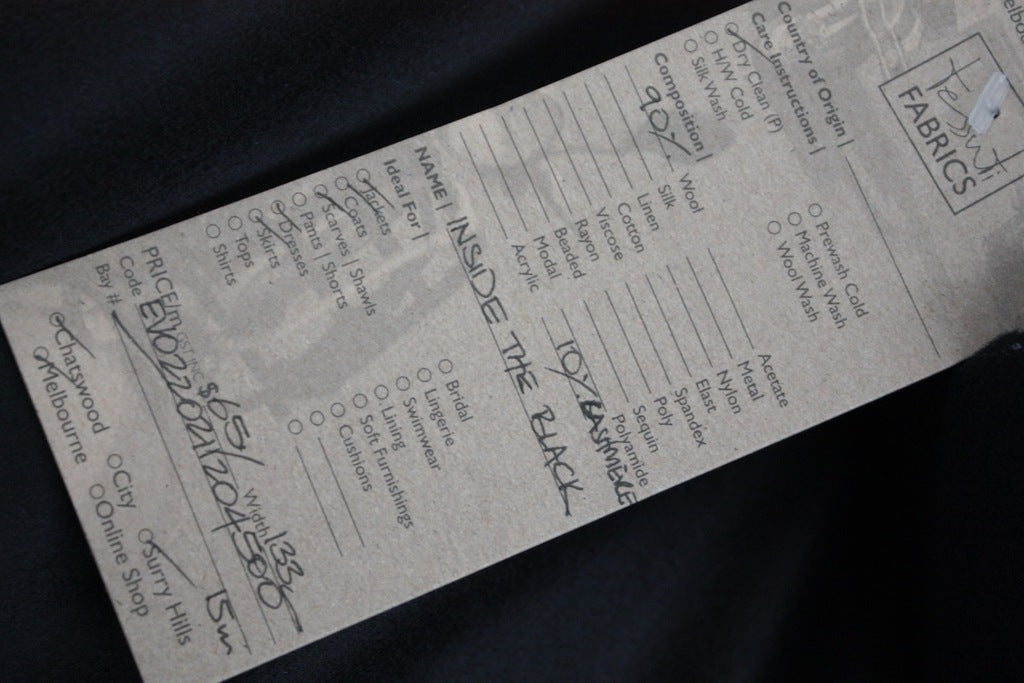 Tessuti
FABRICS
Country of Origin |
Care Instructions |
Dry Clean (P)
H/W Cold
Silk Wash
Prewash Cold
Machine Wash
Wool Wash
Composition |
90% Wool
Silk
Linen
Cotton
Viscose
Rayon
Beaded
Modal
Acrylic
Acetate
Metal
Nylon
Elast
Spandex
Poly
Sequin
Polyamide
10% CASHMERE
NAME | INSIDE THE BLACK
Ideal For |
Jackets
Coats
Scarves | Shawls
Pants | Shorts
Dresses
Skirts
Tops
Shirts
Bridal
Lingerie
Swimwear
Lining
Soft Furnishings
Cushions
PRICE/m GST INC $65/ Width 133c
Code EV02220211204500
Bay # 15m
Chatswood
Melbourne
City
Online Shop
Surry Hills